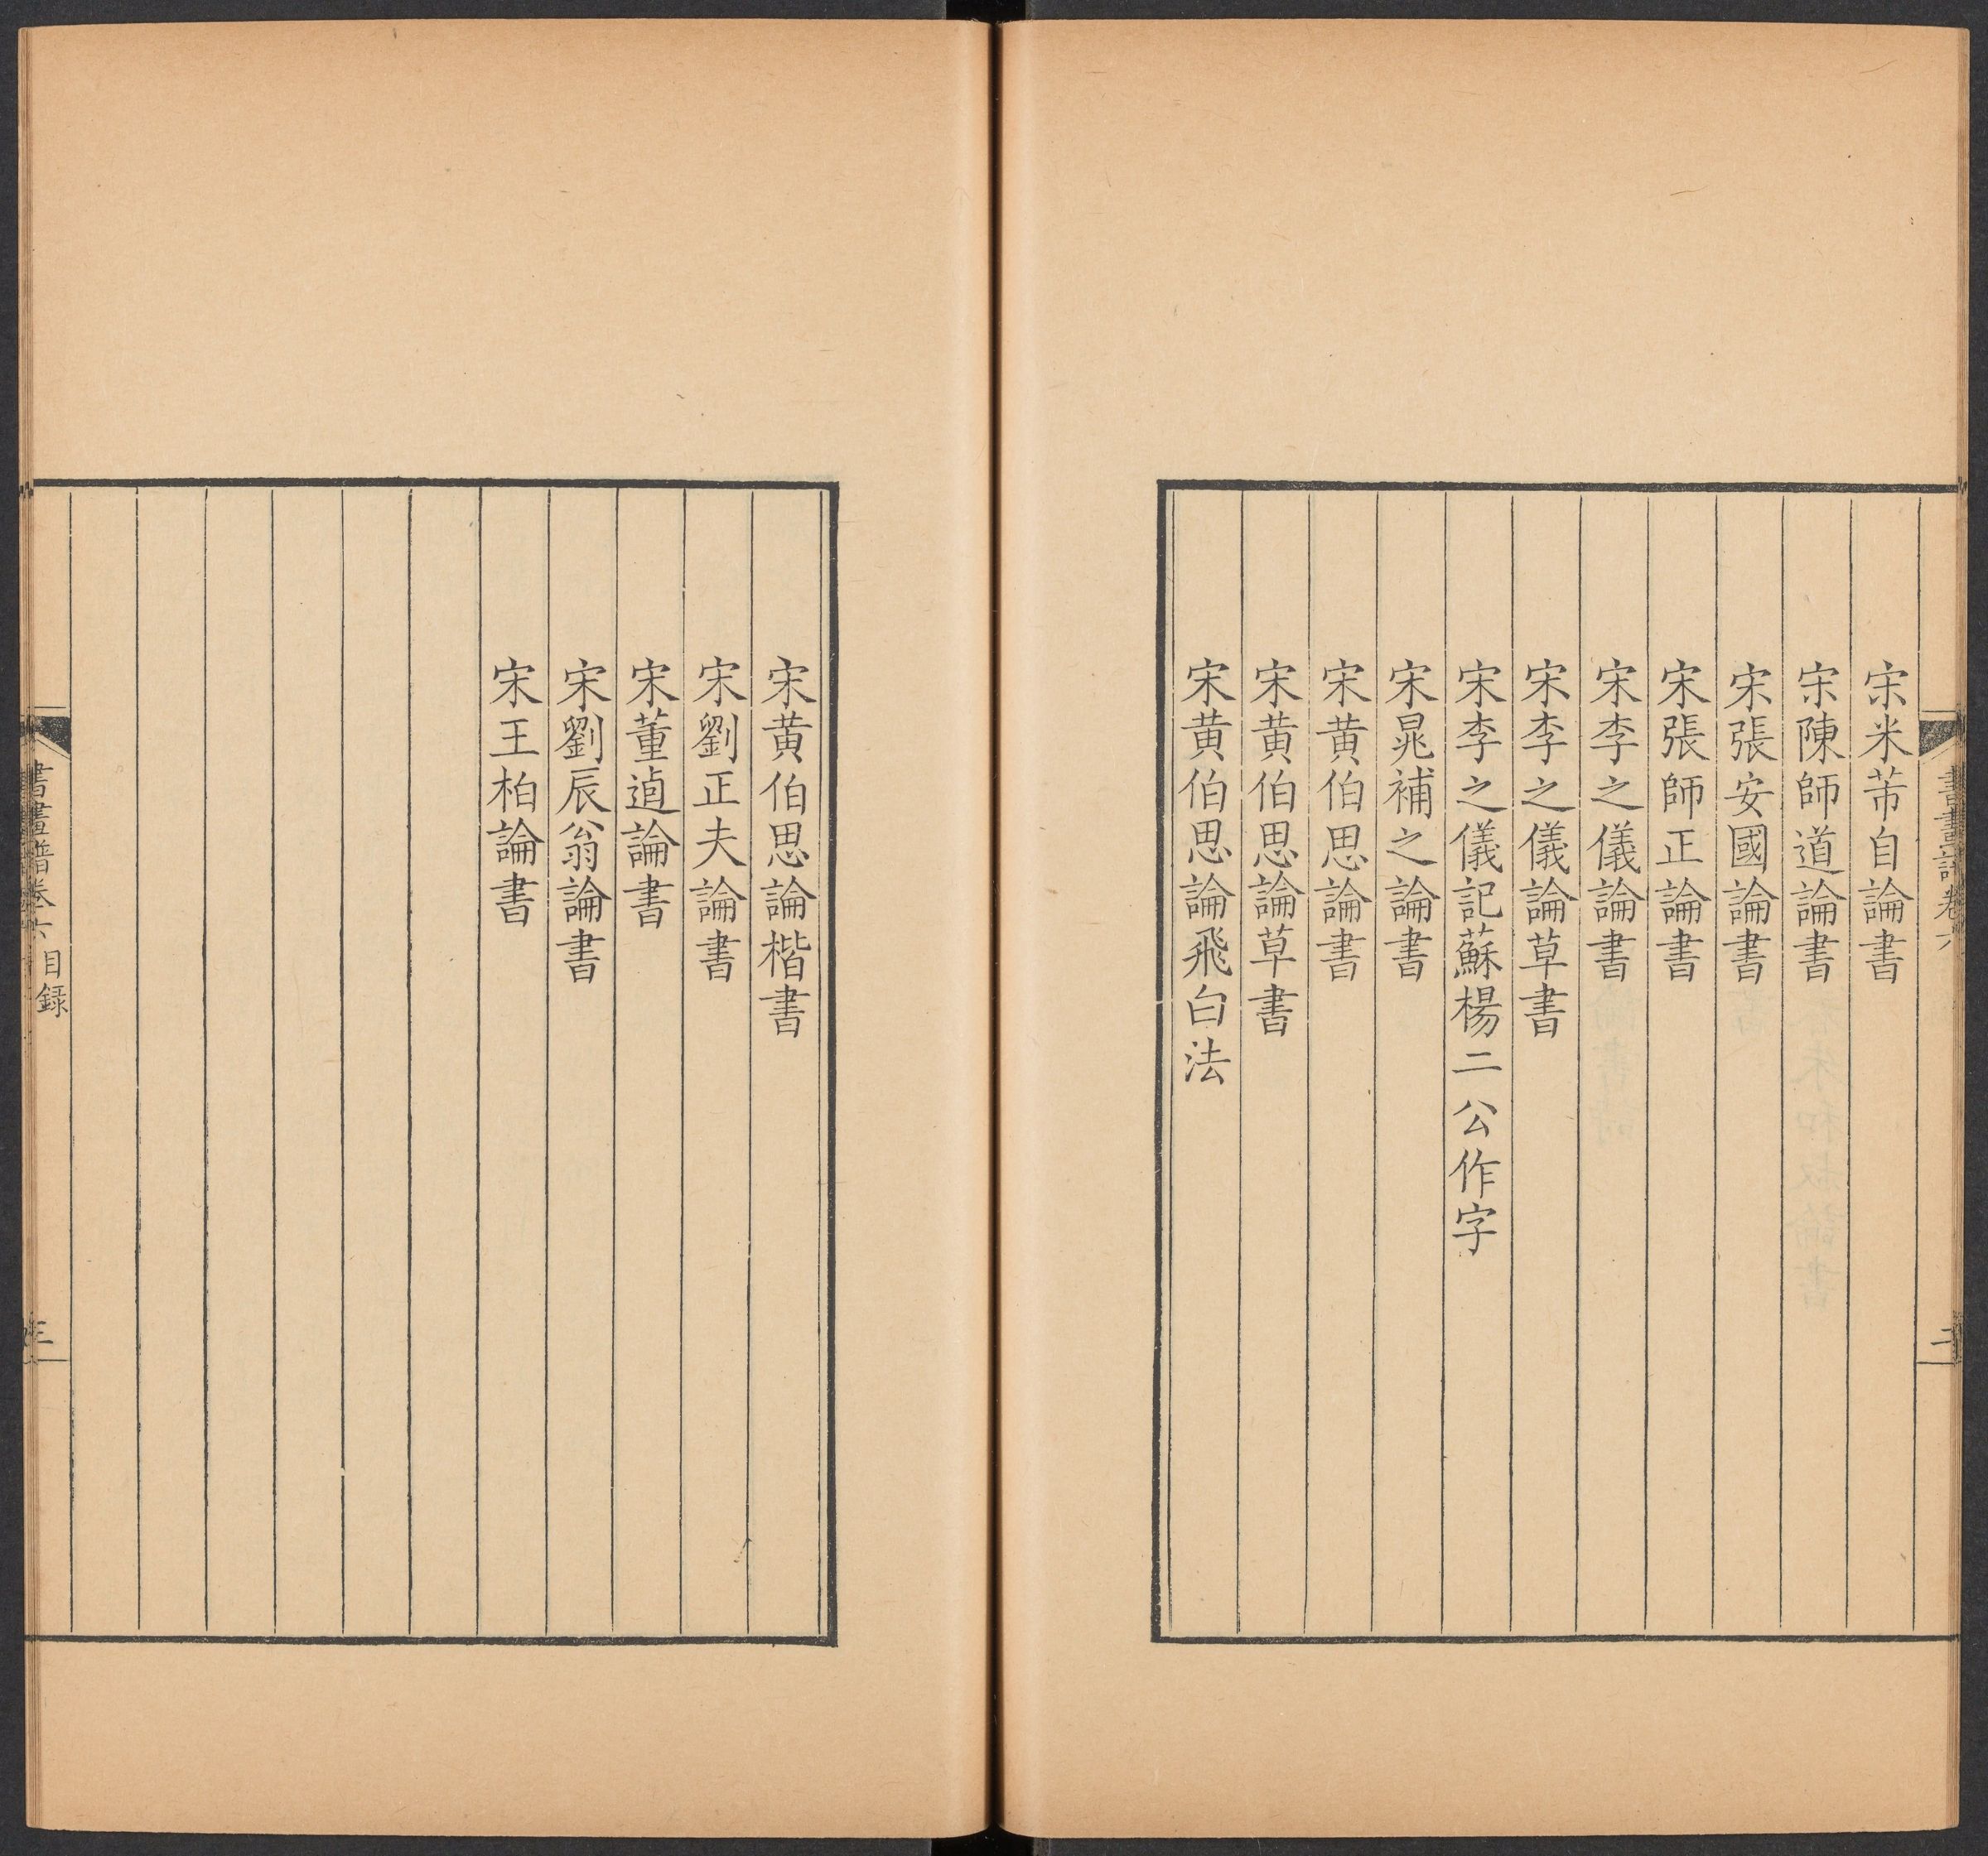 宋米芾自論書
宋陳師道論書
宋張安國論書
宋張師正論書
宋李之儀論書
宋李之儀論草書
宋李之儀記蘇楊二公作字
宋晁補之論書
宋黄伯思論書
宋黄伯思論草書
宋黄伯思論飛白法
宋黄伯思論楷書
宋劉正夫論書
宋董逌論書
宋劉辰翁論書
宋王柏論書
書畫譜卷六 目録
三